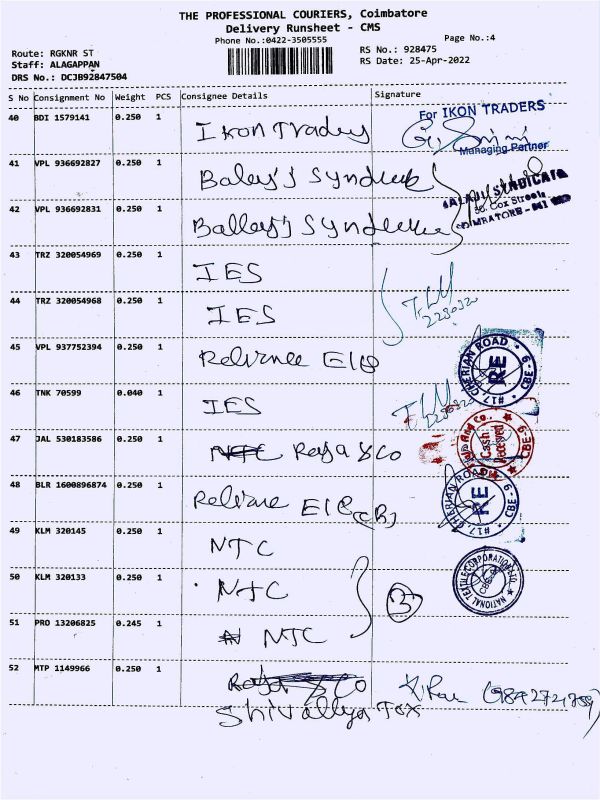 THE PROFESSIONAL COURIERS, Coimbatore
Delivery Runsheet - CMS
Phone No.:0422-3505555
Page No.:4
Route: RGKNR ST
RS No.: 928475
Staff: ALAGAPPAN
RS Date: 25-Apr-2022
DRS No.: DCJB92847504
S No Consignment No Weight PCS Consignee Details Signature
40 BDI 1579141 0.250 1 Ikon Traders For IKON TRADERS
Managing Partner
41 VPL 936692827 0.250 1
SYNDICATE
Cox Street
42 VPL 936692831 0.250 1
43 TRZ 320054969 0.250 1 IES
44 TRZ 320054968 0.250 1 IES
45 VPL 937752394 0.250 1 #17, CHERIAN ROAD CBE-9 RE
46 TNK 70599 0.040 1 IES
47 JAL 530183586 0.250 1 Raja & Co Cash Received CBE-9
48 BLR 1600896874 0.250 1 #17, CHERIAN ROAD CBE-9 RE
49 KLM 320145 0.250 1 NTC
50 KLM 320133 0.250 1 NTC 3 NATIONAL TEXTILE CORPORATION LTD.
51 PRO 13206825 0.245 1 NTC
52 MTP 1149966 0.250 1